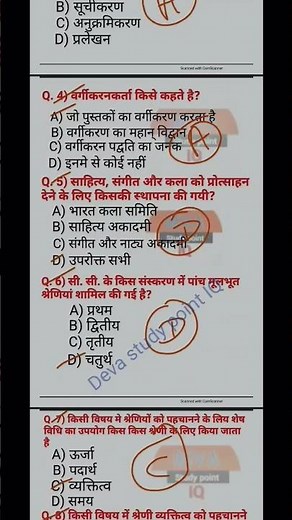 B) सूचीकरण
A
C) अनुक्रमिकरण
D) प्रलेखन
Scanned with CamScanner
Q. 4) वर्गीकरनकर्ता किसे कहते है?
A) जो पुस्तकों का वर्गीकरण करता है
B) वर्गीकरण का महान् विद्वान
A
C) वर्गीकरन पद्वति का जनक
D) इनमे से कोई नहीं
IQ
Q. 5) साहित्य, संगीत और कला को प्रोत्साहन
देने के लिए किसकी स्थापना की गयी?
A) भारत कला समिति
B) साहित्य अकादमी
D
C) संगीत और नाट्य अकादमी
D) उपरोक्त सभी
Q. 6) सी. सी. के किस संस्करण में पांच मूलभूत
श्रेणियां शामिल की गई है?
A) प्रथम
B) द्वितीय
D
C) तृतीय
D) चतुर्थ
Deva study point IQ
Scanned with CamScanner
Q. 7) किसी विषय मे श्रेणियों को पहचानने के लिय शेष
विधि का उपयोग किस किस श्रेणी के लिए किया जाता
है
A) ऊर्जा
B) पदार्थ
C
study point
C) व्यक्तित्व
IQ
D) समय
Q. 8) किसी विषय में श्रेणी व्यक्तित्व को पहचानने